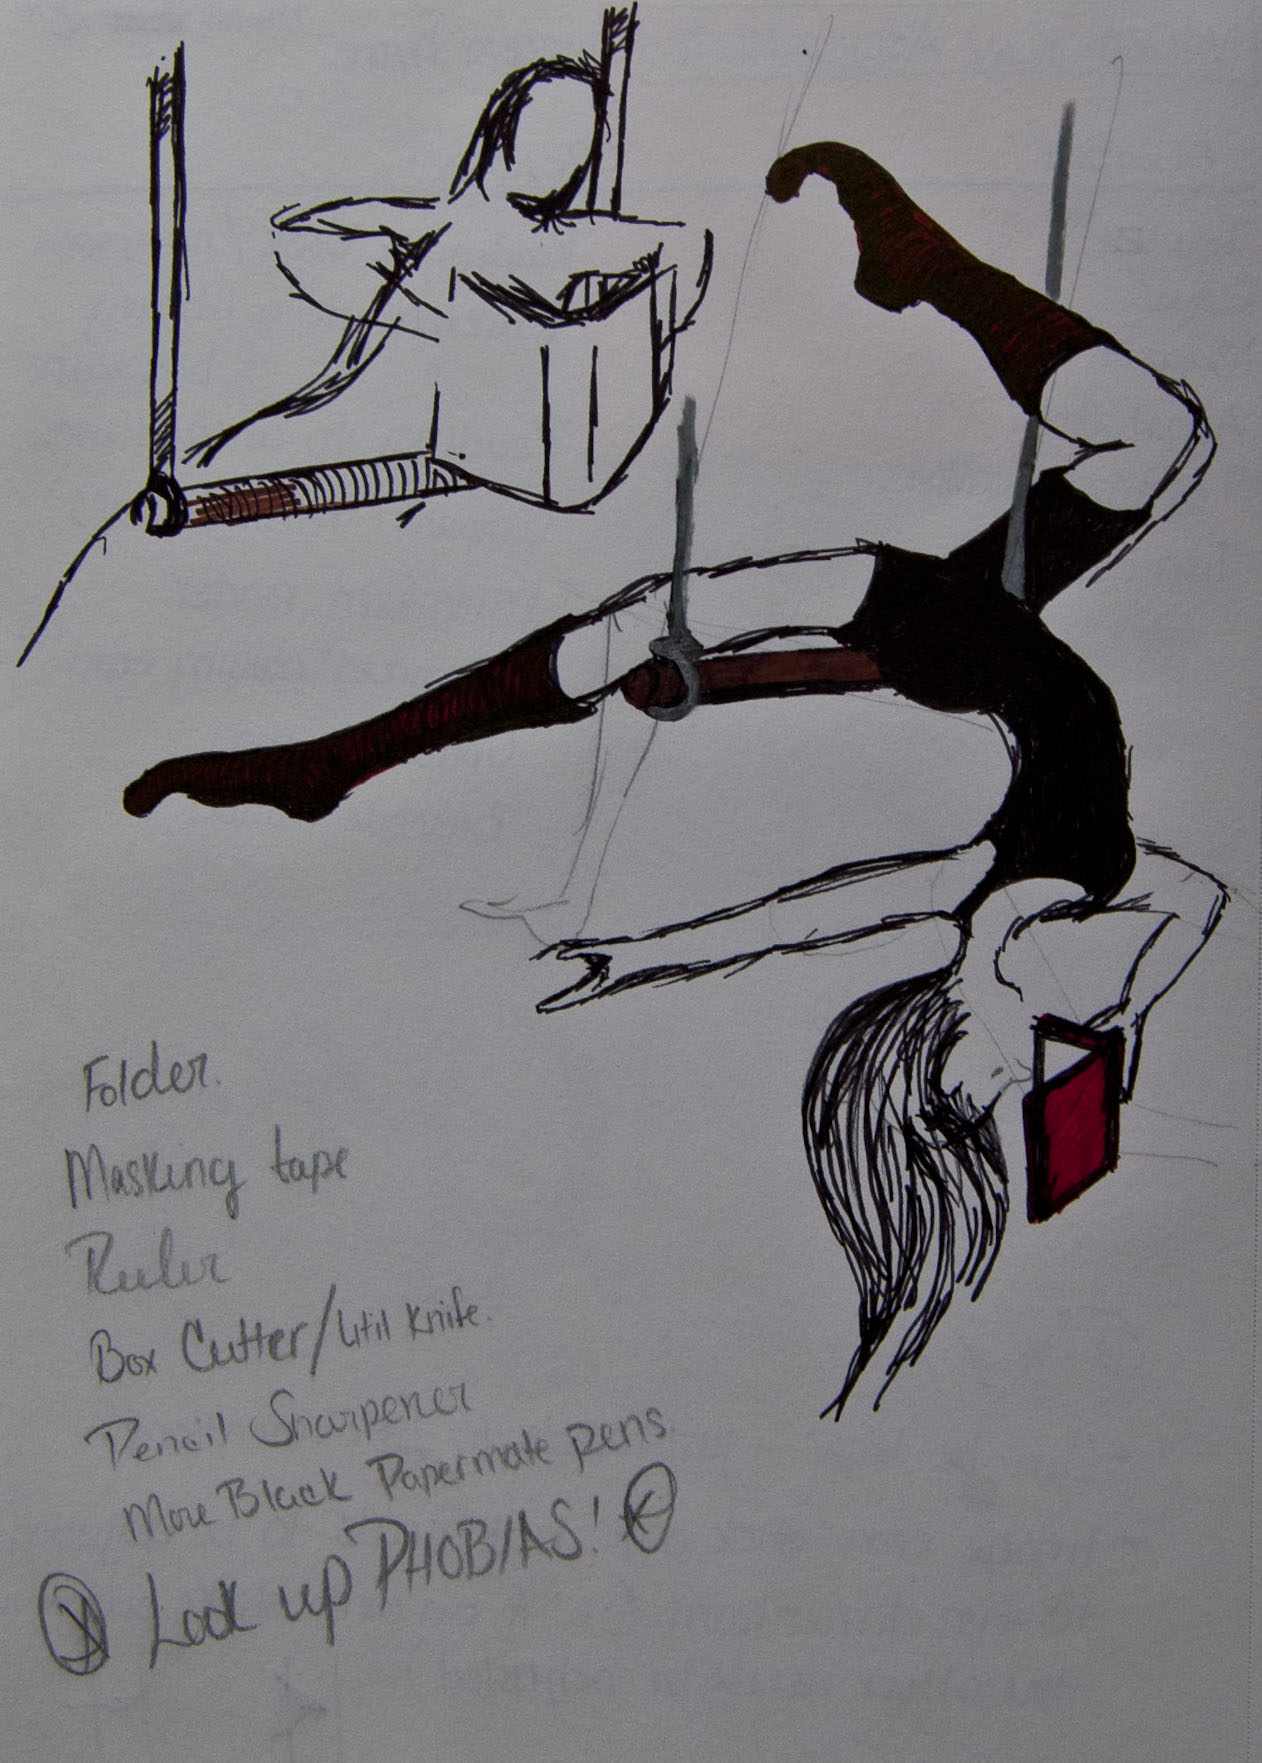 Folder.
Masking tape
Ruler
Box Cutter/Util Knife.
Pencil Sharpener
More Black Papermate pens.
Look up PHOBIAS!